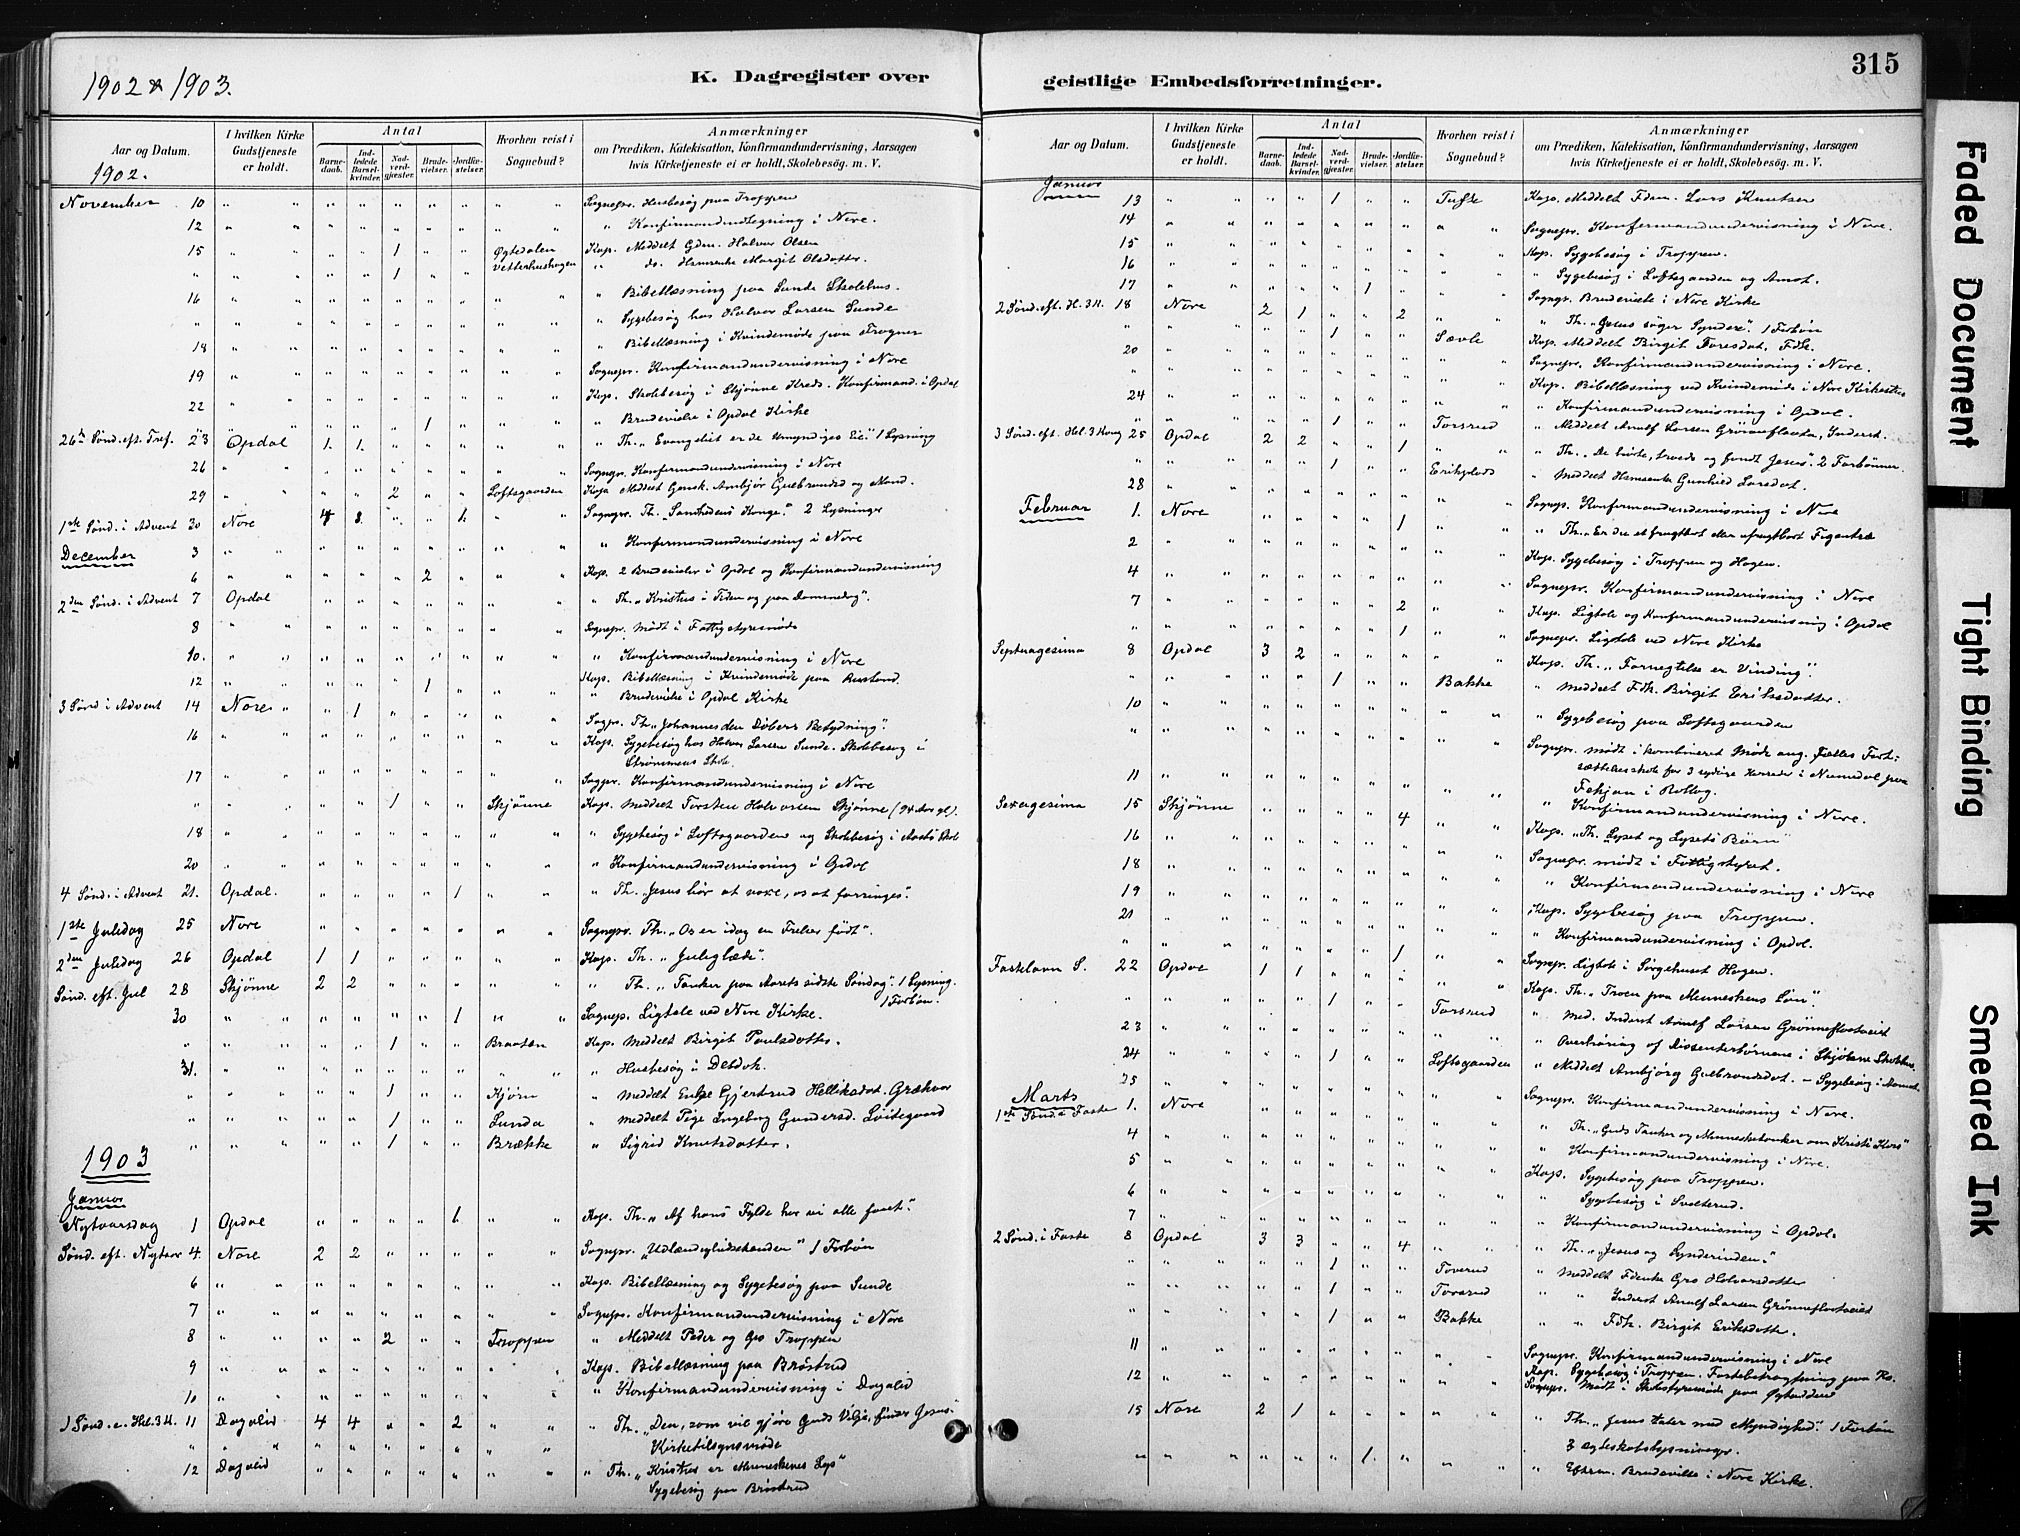 1902 & 1903.
K. Dagregister over
Aar og Datum.
1902.
I hvilken Kirke Gudstjeneste er holdt.
Antal
Barnedaab.
Indledede Barselkvinder.
Nadverdgjæster.
Brudevielser.
Jordfæstelser.
Hvorhen reist i Sognebud?
Anmærkninger
om Prædiken, Katekisation, Konfirmandundervisning, Aarsagen
hvis Kirketjeneste ei er holdt, Skolebesög. m. V.
November 10 " " " " " " " " " Sognepr. Husbesøg paa Troppen
12 " " " " " " " " " " Konfirmandlesning i Nore.
15 " " " " 1 " " Øytedalen Kap. Meddelt Gdm. Halvor Olsen
" " " " " 1 " " Vetterhushagen " do. Margit Olsdatter.
16 " " " " " " " " " " Bibellæsning paa Sunde Skolehus.
" " " " " " " " " " " Sygebesøg hos Halvor Larsen Sunde
18 " " " " " " " " " " Bibellæsning i Kvindemøde paa Frogner
19 " " " " " " " " " Sognepr. Konfirmandundervisning i Nore
22 " " " " " " " " " Kap. Skolebesøg i Skjønne Kreds. Konfirmand. i Opdal
" " " " " " 1 " " " " Brudevielse i Opdal Kirke
26de Sønd. eft. Tref. 23 Opdal 1. 1. " " " " " " Th. „Evangeliet er de Umyndiges Eie." 1 Lysning
26 " " " " " " " " " Sognepr. Konfirmandundervisning i Nore
29 " " " " 2 " " Loftsgaarden Kap. Meddelt Gamk. Ambjør Gulbrandsd og Mand.
1ste Sønd. i Advent 30 Nore 4 8. " " 1. " " Sognepr. Th. „Sandhedens Konge." 2 Lysninger
December 3 " " " " " " " " " " Konfirmandundervisning i Nore
6 " " " " " 2 " " " Kap. 2 Brudevielser i Opdal og Konfirmandundervisning
2den Sønd. i Advent 7 Opdal " " " " " " " " Th. „Kristus i Tiden og paa Dommedag".
8 " " " " " " " " " Sognepr. Mødt i Fattigstyresmøde
10. " " " " " " " " " " Konfirmandundervisning i Nore
12 " " " " " " " " " Kap. Bibellæsning i Kvindemøde paa Rustand.
" " 1 " " " " Brudevielse i Opdal Kirke
3 Sønd i Advent 14 Nore " " 1 " " " " " Sogpr. Th. „Johannes den Døbers Betydning".
16 " " " " " " " " " Kap. Sygebesøg hos Halvor Larsen Sunde. Skolebesøg i
Strømmens Skole.
17 " " " " " " " " " Sogpr. Konfirmandundervisning i Nore
" " " " " 1 " " Skjønne Kap. Meddelt Torsten Halvorsen Skjønne (94 Aar gl).
18 " " " " " " " " " " Sygebesøg i Loftsgaarden og Skolebesøg i Aasts Skol
20 " " " " " " " " " " Konfirmandundervisning i Opdal
4 Sønd. i Advent 21. Opdal. " " " " 1 " " " Th. „Jesus bør at voxe, os at forringes".
1ste Juledag 25 Nore " " " " " " " Sognepr. Th. „Os er idag en Frelser født".
2den Juledag 26 Opdal 1 1 " " " " " Kap. Th. „Juleglæde".
Sønd. eft. Jul 28 Skjønne 2 2 " " " " " " Th. „Tanker paa Aarets sidste Søndag". 1 Lysning.
1 Forbøn.
30 " " " " " " 1 " " Sognep. Ligtale ved Nore Kirke.
" " " " " 1 " " Braaten Kap. Meddelt Birgit Paulsdatter.
31. " " " " " " " " " " Husbesøg i Detdok.
" " " " " 1 " " Kjørn " Meddelt Enkje Gjertrud Helliksdat. Grækvar
" " " " " 1 " " Lunda " Meddelt Pige Ingeborg Gundersd. Loitegaard
" " " " " 1 " " Brække " Sigrid Knutsdatter.
1903
Januar
Nytaarsdag 1 Opdal " " " " 6 " " Kap. Th. „Af hans Fylde har vi alle faaet".
Sønd. eft. Nytaar 4. Nore 2 2 " " " " " Sognepr. „Udlændighedstanden" 1 Forbøn
6 " " " " " " " " " Kap. Bibellæsning og Sygebesøg paa Sunde
7 " " " " " " " " " Sognepr. Konfirmandundervisning i Nore
8 " " " " 2 " " Troppen " Meddelt Peder og Gro Troppen
9 " " " " " " " " " Kap. Bibellæsning paa Brøstrud
10 " " " " " " " " " " Konfirmandundervisning i Dagalid
1 Sønd. e. Hel. 3 K. 11 Dagalid 4 4 " " 2 " " " Th. „Den, som vil gjøre Guds Vilje, finder Jesus"
" " " " " " " " " " Kirketilsynsmøde
12 Dagalid " " " " " " " " Th. „Kristus er Menneskenes Lys"
Sygebesøg paa Brøstrud
geistlige Embedsforretninger.
315
Aar og Datum.
I hvilken Kirke Gudstjeneste er holdt.
Antal
Barnedaab.
Indledede Barselkvinder.
Nadverdgjæster.
Brudevielser.
Jordfæstelser.
Hvorhen reist i Sognebud?
Anmærkninger
om Prædiken, Katekisation, Konfirmandundervisning, Aarsagen
hvis Kirketjeneste ei er holdt, Skolebesög. m. V.
Januar 13 " " " " 1 " " Tufte Kap. Meddelt Fdm. Lars Knutsen
14 " " " " " " " " " Sognepr. Konfirmandundervisning i Nore.
15 " " " " " " " " " Kap. Sygebesøg i Troppen.
16 " " " " " " " " " " Sygebesøg i Loftsgaarden og Amot.
17 " " " " " 1 " " " Sognepr. Brudevielse i Nore Kirke
2 Sønd. eft. H. 3 K. 18 Nore 2 1 " " 2 " " " Th. „Jesus søger Syndere". 1 Forbøn
" " " " " 1 " " Sævle Kap. Meddelt Birgit Toresdat. Fdk.
20 " " " " " " " " " Sognepr. Konfirmandundervisning i Nore.
" " " " " " " " " " Kap. Bibellæsning ved Kvindemøde i Nore Kirkestue
24 " " " " " " " " " " Konfirmandundervisning i Opdal.
3 Sønd. eft. Hel. 3 Kong 25 Opdal 2 2 1 " 1 Torsrud " Meddelt Arnulf Larsen Grønneflaata, Inderst.
" " Th. „De ledte, troede og fandt Jesus". 2 Forbønner
" " " " " 1 " " Eriksplads " Meddelt Gunhild Larsdat.
28 " " " " " " " " " Sognep. Konfirmandundervisning i Nore
Februar 1. Nore " " " " 1 " " " Th. „Er du et frugtbart eller ufrugtbart Figentræ
2 " " " " " " " " " Kap. Sygebesøg i Troppen og Hagen.
4 " " " " " " " " " Sognepr. Konfirmandundervisning i Nore
7 " " " " " " 2 " " Kap. Ligtale og Konfirmandundervisning i Opdal
" " " " " " " 1 " " Sognepr. Ligtale ved Nore Kirke
Septuagesima 8 Opdal 3 2 " " " " " Kap. Th. „Fornegtelse er Vinding".
" " " " " 1 " " Bakke " Meddelt Fdk. Birgit Eriksdatter.
10 " " " " " " " " " " Sygebesøg paa Loftsgaarden
" " " " " " " " " " Sognepr. mødt i kombineret Møde ang. fælles Fort-
sættelsesskole for 3 sydlige Herreder i Numedal paa
Fekjan i Rollag.
11 " " " " " " " " " " Konfirmandundervisning i Nore.
Sexagesima 15 Skjønne " " " " 4 " " Kap. „Th. Lyset og Lysets Børn"
16 " " " " " " " " " Sognepr. mødt i Fattigstyret.
18 " " " " " " " " " " Konfirmandundervisning i Nore
19 " " " " " " " " " Kap. Sygebesøg paa Troppen.
21 " " " " " " " " " " Konfirmandundervisning i Opdal.
" " " " " " " 1 " " Sognepr. Ligtale i Sørgehuset Hagen.
Fastelavn S. 22 Opdal 1 1 " " " " " Kap. Th. „Troen paa Menneskens Søn".
" " " " " 1 " " Torsrud " Med. Inderst Arnulf Larsen Grønneflaateiet
23 " " " " " " " " " " Overhøring af Dissenterbørnene i Skjønne Skolehus.
24 " " " " 1 " " Loftsgaarden " Meddelt Ambjørg Gulbrandsdat. – Sygebesøg i
25 " " " " " " " " " Sognepr. Konfirmandundervisning i Nore.
Marts
1ste Sønd. i Faste 1. Nore " " " " " " " " Th. „Guds Tanker og Mennesketanker om Kristi Kors"
4 " " " " " " " " " " Konfirmandundervisning i Nore.
5 " " " " " " " " " Kap. Sygebesøg paa Troppen.
6 " " " " " " " " " " Sygebesøg i Svelterud.
7 " " " " " " " " " " Konfirmandundervisning i Opdal.
2 Sønd. i Faste 8 Opdal 3 3 " " 4 " " " Th. „Jesus og Synderinden."
" " " " " 1 " " Toverud " Meddelt Fdenke Gro Halvorsdatter
" " " " " 1 " " Torsrud " " Inderst Arnulf Larsen Grønneflaateiet
" " " " " 1 " " Bakke " " Fdk. Birgit Eriksdatter.
11 " " " " " " " " " Sognepr. Konfirmandundervisning i Nore
12 " " " " " " " " " Kap. Sygebesøg i Troppen. Fastebetragtning paa Ro.
Sognepr. Mødt i Skolestyremøde paa
15 Nore 2 1 " " " " " " Th. „Jesus taler med Myndighed". 1 Forbøn
3 egteskabslysninger.
" " " " " " 1. " " " " Efterm. Brudevielse i Nore Kirke.
Faded Document
Tight Binding
Smeared Ink